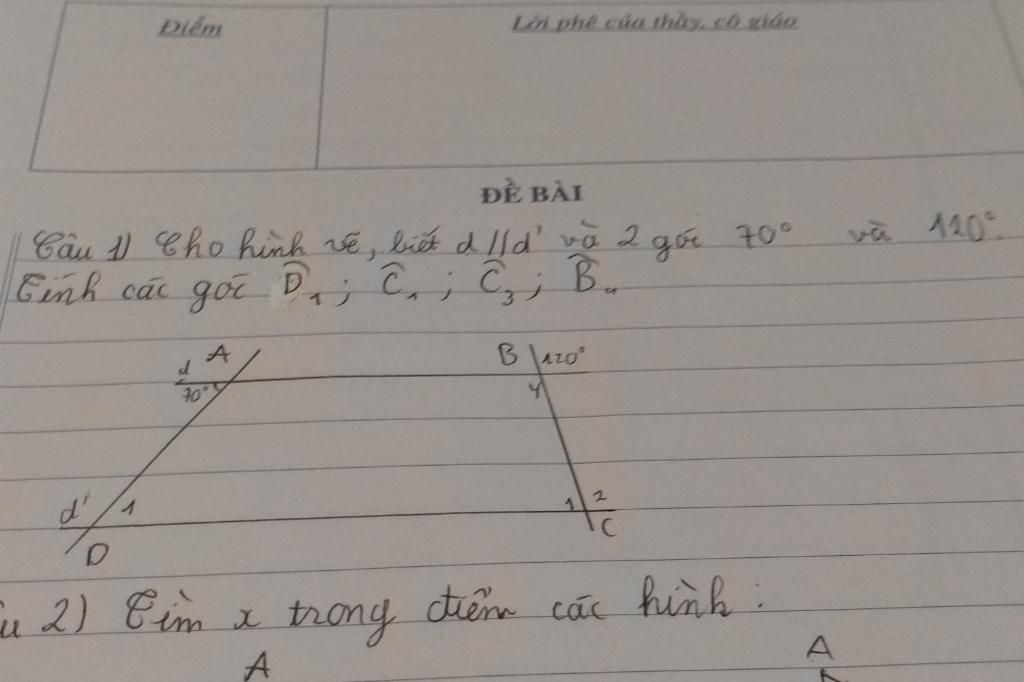 Điểm
Lời phê của thầy, cô giáo
ĐỀ BÀI
Câu 1) Cho hình vẽ, biết d//d' và 2 góc 70° và 120°.
Tính các góc D̂₁; Ĉ₁; Ĉ₃; B̂₄
d A B 120°
70° 4
d' 1 1 2
D C
2) Tìm x trong điểm các hình:
A A